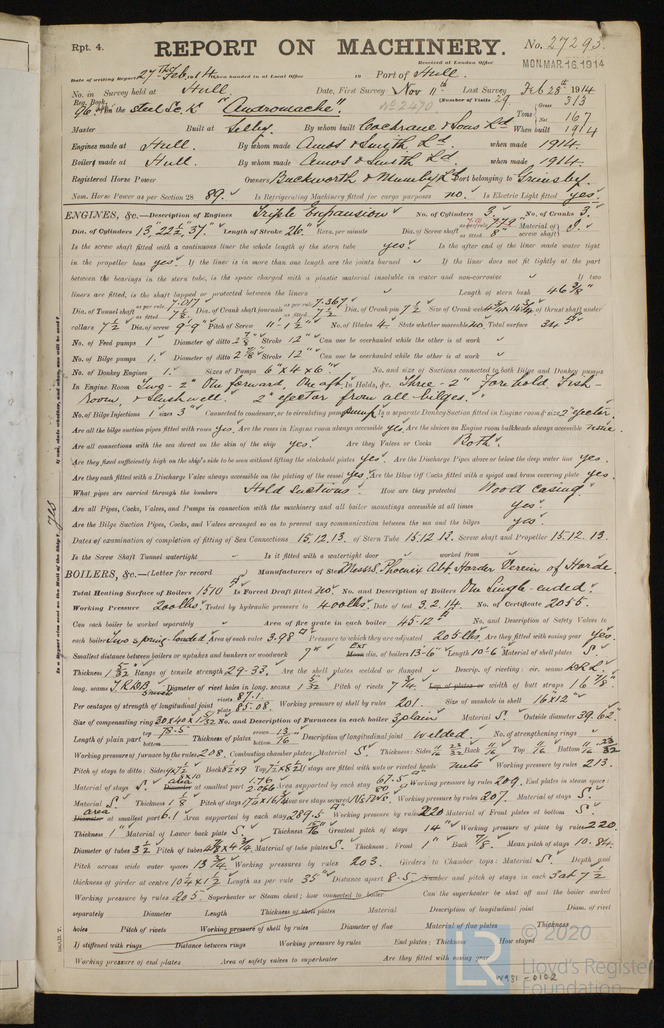 Rpt. 4.
REPORT ON MACHINERY.
No. 27293.
Received at London Office
MON. MAR. 16. 1914
Date of writing Report 27th Feb 1914 When handed in at Local Office 19 Port of Hull.
No. in Survey held at Hull. Date, First Survey Nov 11th Last Survey Feb 28th 1914
Reg. Book. (Number of Visits 29.
No 2470
96. on the steel Sc. K. "Andromache". Tons Gross 313 Net 167
Master Built at Selby. By whom built Cochrane & Sons Ld When built 1914
Engines made at Hull. By whom made Amos & Smith Ld. when made 1914.
Boilers made at Hull. By whom made Amos & Smith Ld. when made 1914.
Registered Horse Power Owners Port belonging to Grimsby.
Nom. Horse Power as per Section 28 89. Is Refrigerating Machinery fitted for cargo purposes no. Is Electric Light fitted yes.
ENGINES, &c.—Description of Engines Triple Expansion No. of Cylinders 3. No. of Cranks 3.
Dia. of Cylinders 13, 22½, 37." Length of Stroke 26." Revs. per minute Dia. of Screw shaft as per rule 7.79 as fitted 8" Material of screw shaft S.
Is the screw shaft fitted with a continuous liner the whole length of the stern tube yes. Is the after end of the liner made water tight
in the propeller boss yes. If the liner is in more than one length are the joints burned If the liner does not fit tightly at the part
between the bearings in the stern tube, is the space charged with a plastic material insoluble in water and non-corrosive If two
liners are fitted, is the shaft lapped or protected between the liners Length of stern bush 46 3/8"
Dia. of Tunnel shaft as per rule 7.017 as fitted 7½ Dia. of Crank shaft journals as per rule 7.367 as fitted 7½ Dia. of Crank pin 7½ Size of Crank webs Dia. of thrust shaft under
collars 7½ Dia. of screw 9-9" Pitch of Screw 11-1½" No. of Blades 4. State whether moveable no. Total surface 34
No. of Feed pumps 1 Diameter of ditto 2 7/8 Stroke 12" Can one be overhauled while the other is at work
No. of Bilge pumps 1. Diameter of ditto 2 7/8 Stroke 12" Can one be overhauled while the other is at work
No. of Donkey Engines 1. Sizes of Pumps 6" x 4 x 6" No. and size of Suctions connected to both Bilge and Donkey pumps
In Engine Room Two - 2" One forward, One aft. In Holds, &c. Three - 2" Fore hold Fish-
room, & Slushwell. 2" ejector from all bilges.
No. of Bilge Injections 1 sizes 3" Connected to condenser, or to circulating pump pump. Is a separate Donkey Suction fitted in Engine room & size 2" ejector.
Are all the bilge suction pipes fitted with roses yes. Are the roses in Engine room always accessible yes. Are the sluices on Engine room bulkheads always accessible none.
Are all connections with the sea direct on the skin of the ship yes. Are they Valves or Cocks Both.
Are they fixed sufficiently high on the ship's side to be seen without lifting the stokehold plates yes. Are the Discharge Pipes above or below the deep water line yes.
Are they each fitted with a Discharge Valve always accessible on the plating of the vessel yes. Are the Blow Off Cocks fitted with a spigot and brass covering plate yes.
What pipes are carried through the bunkers Hold Suctions. How are they protected Wood casing.
Are all Pipes, Cocks, Valves, and Pumps in connection with the machinery and all boiler mountings accessible at all times yes.
Are the Bilge Suction Pipes, Cocks, and Valves arranged so as to prevent any communication between the sea and the bilges yes.
Dates of examination of completion of fitting of Sea Connections 15.12.13. of Stern Tube 15.12.13. Screw shaft and Propeller 15.12.13.
Is the Screw Shaft Tunnel watertight Is it fitted with a watertight door worked from
BOILERS, &c.—(Letter for record Manufacturers of Steel Messrs. Phoenix Abt Horder Verein of Horde.
Total Heating Surface of Boilers 1510 Is Forced Draft fitted no. No. and Description of Boilers One Single-ended.
Working Pressure 200 lbs. Tested by hydraulic pressure to 400 lbs. Date of test 3.2.14. No. of Certificate 2055.
Can each boiler be worked separately Area of fire grate in each boiler 45.12 No. and Description of Safety Valves to
each boiler Two Spring-loaded. Area of each valve 3.98 Pressure to which they are adjusted 205 lbs. Are they fitted with easing gear yes.
Smallest distance between boilers or uptakes and bunkers or woodwork 7" Ext dia. of boilers 13-6" Length 10-6" Material of shell plates S.
Thickness 1 5/32 Range of tensile strength 29-33. Are the shell plates welded or flanged Descrip. of riveting: cir. seams
long. seams T.R.D.B. Diameter of rivet holes in long. seams 1 5/32 Pitch of rivets 7¾. Lap of plates or width of butt straps 16 7/8"
Per centages of strength of longitudinal joint rivets 87.1. plate 85.08. Working pressure of shell by rules 201. Size of manhole in shell 16" x 12"
Size of compensating ring No. and Description of Furnaces in each boiler 3 plain Material S. Outside diameter 39.62"
Length of plain part top 78.5 bottom Thickness of plates crown 13/16 bottom Description of longitudinal joint welded. No. of strengthening rings
Working pressure of furnace by the rules 208. Combustion chamber plates: Material S. Thickness: Sides 23/32 Back 11/16 Top 11/16 Bottom 23/32
Pitch of stays to ditto: Sides Back 8½ x 9 Top If stays are fitted with nuts or riveted heads nuts Working pressure by rules 213.
Material of stays S. area at smallest part 1.76 2.066 Area supported by each stay 67.5 80 Working pressure by rules 209. End plates in steam space:
Material S. Thickness 1 1/8 Pitch of stays How are stays secured Working pressure by rules 207. Material of stays S.
area at smallest part 6.1 Area supported by each stay 289.5 Working pressure by rules 220 Material of Front plates at bottom S.
Thickness 1" Material of Lower back plate S. Thickness 15/16 Greatest pitch of stays 14" Working pressure of plate by rules 220.
Diameter of tubes 3½ Pitch of tubes Material of tube plates S. Thickness: Front 1" Back 7/8. Mean pitch of stays 10.84.
Pitch across wide water spaces 13¾. Working pressures by rules 203. Girders to Chamber tops: Material S. Depth and
thickness of girder at centre 10¼ x 1½ Length as per rule 35" Distance apart 8.5 Number and pitch of stays in each 3 at 7½
Working pressure by rules 205. Superheater or Steam chest; how connected to boiler Can the superheater be shut off and the boiler worked
separately Diameter Length Thickness of shell plates Material Description of longitudinal joint Diam. of rivet
holes Pitch of rivets Working pressure of shell by rules Diameter of flue Material of flue plates Thickness
If stiffened with rings Distance between rings Working pressure by rules End plates: Thickness How stayed
Working pressure of end plates Area of safety valves to superheater Are they fitted with easing gear
W931-0102
© 2020
Lloyd's Register
Foundation